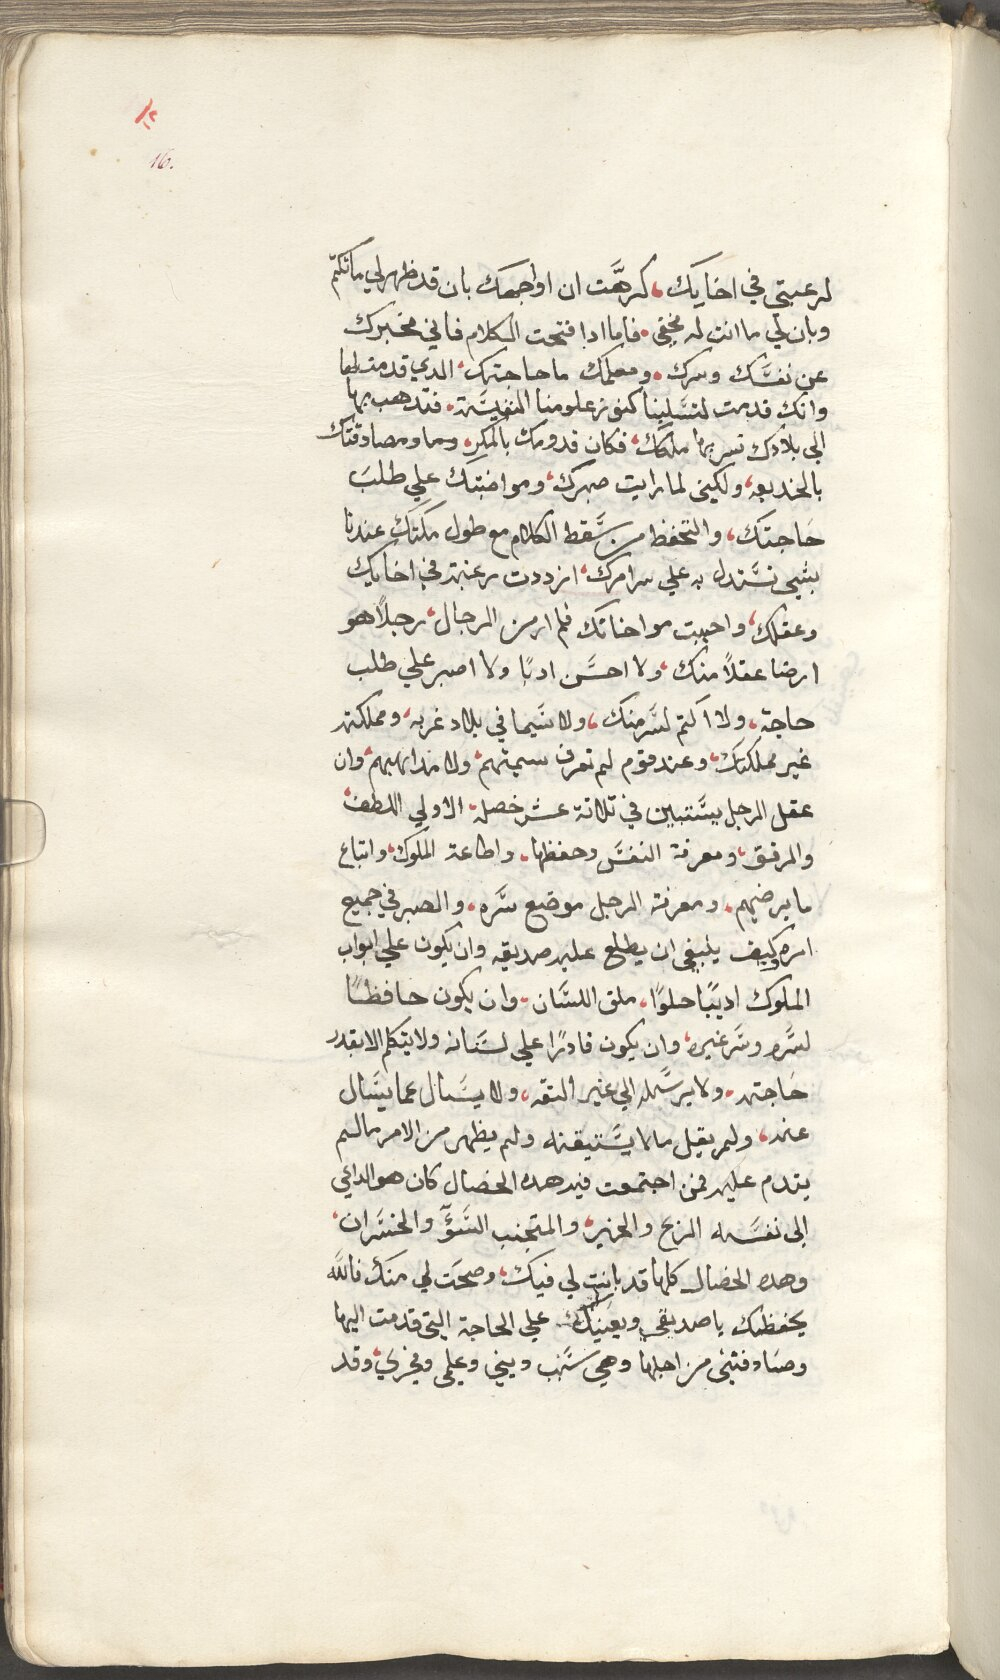 ١٤
16.
لرغبتي في اخايك، كرهَّت ان اواجهك بان قد ظهر لي ماتكتم
وبان لي ما انت له مخفي. فاما ادا فتحت الكلام فاني مخبرك
عن نفسَّك وسرك. ومعلمك ما حاجتك، الدي قدمت لها
وانك قدمت لتسَّلبنا كنوز علومنا النفيسَّة. فتدهب بها
الي بلادك تسر بها ملكك، فكان قدومك بالمكر، ومصادقتك
بالخديعه، ولكيني لما رايت صبرك، ومواضبتك علي طلبَ
حَاجتك، والتحفظ من سَّقط الكلام مع طول مكتك عندنا
بشيي نسَّتدل به علي سرامرك، ازددت رغبة في اخايك
وعقلك، واحببت مواخاتك فلم ار من الرجال، رجلاً هو
ارضا عقلاً منك، ولا احسَّن ادبًا ولا اصبر علي طلب
حاجة، ولا اكتم لسَّر منك، ولا سَّيما في بلاد غربه، ومملكة
غير مملكتك، وعند قوم لم تعرف سيمتهم، ولا مداهبهم، وان
عقل الرجل يسَّتبين في تلاتة عشر خصلة. الاولي اللطف،
والرفق، ومعرفة النفسَّ وحفظها. واطاعة الملوك، واتباع
مايرضيهم. ومعرفة الرجل موضع سَّره. والصبر في جميع
امره وكيف ينبغي ان يطلع عليه صديقه وان يكون علي ابواب
الملوك اديبًا حلوًا. ملق اللسَّان. وان يكون حافظًا
لسَّره وسَّر غيره، وان يكون قادرًا علي لسَّانه ولايتكلم الا بقدر
حَاجته. ولا يرسَّله الي غير التقه، ولا يسَّال عما يسَّال
عنه، ولم يقيل مالايسَّتيقنه ولم يظهر من الامر مالم
يتدم عليه فمن اجتمعت فيه هده الخصال كان هو الداعي
الى نفسَّه الربح والخير، والمتجنب السَّوَّ والخسَّران،
وهده الخصال كلها قد بانت لي فيك، وصحَت لي منك فالله
يحفظك ياصديقي ويعينَك علي الحاجة التي قدمت اليها
وصَادقتني من اجلها وهي سَّتب ديني وعلمي وفخري، وقد